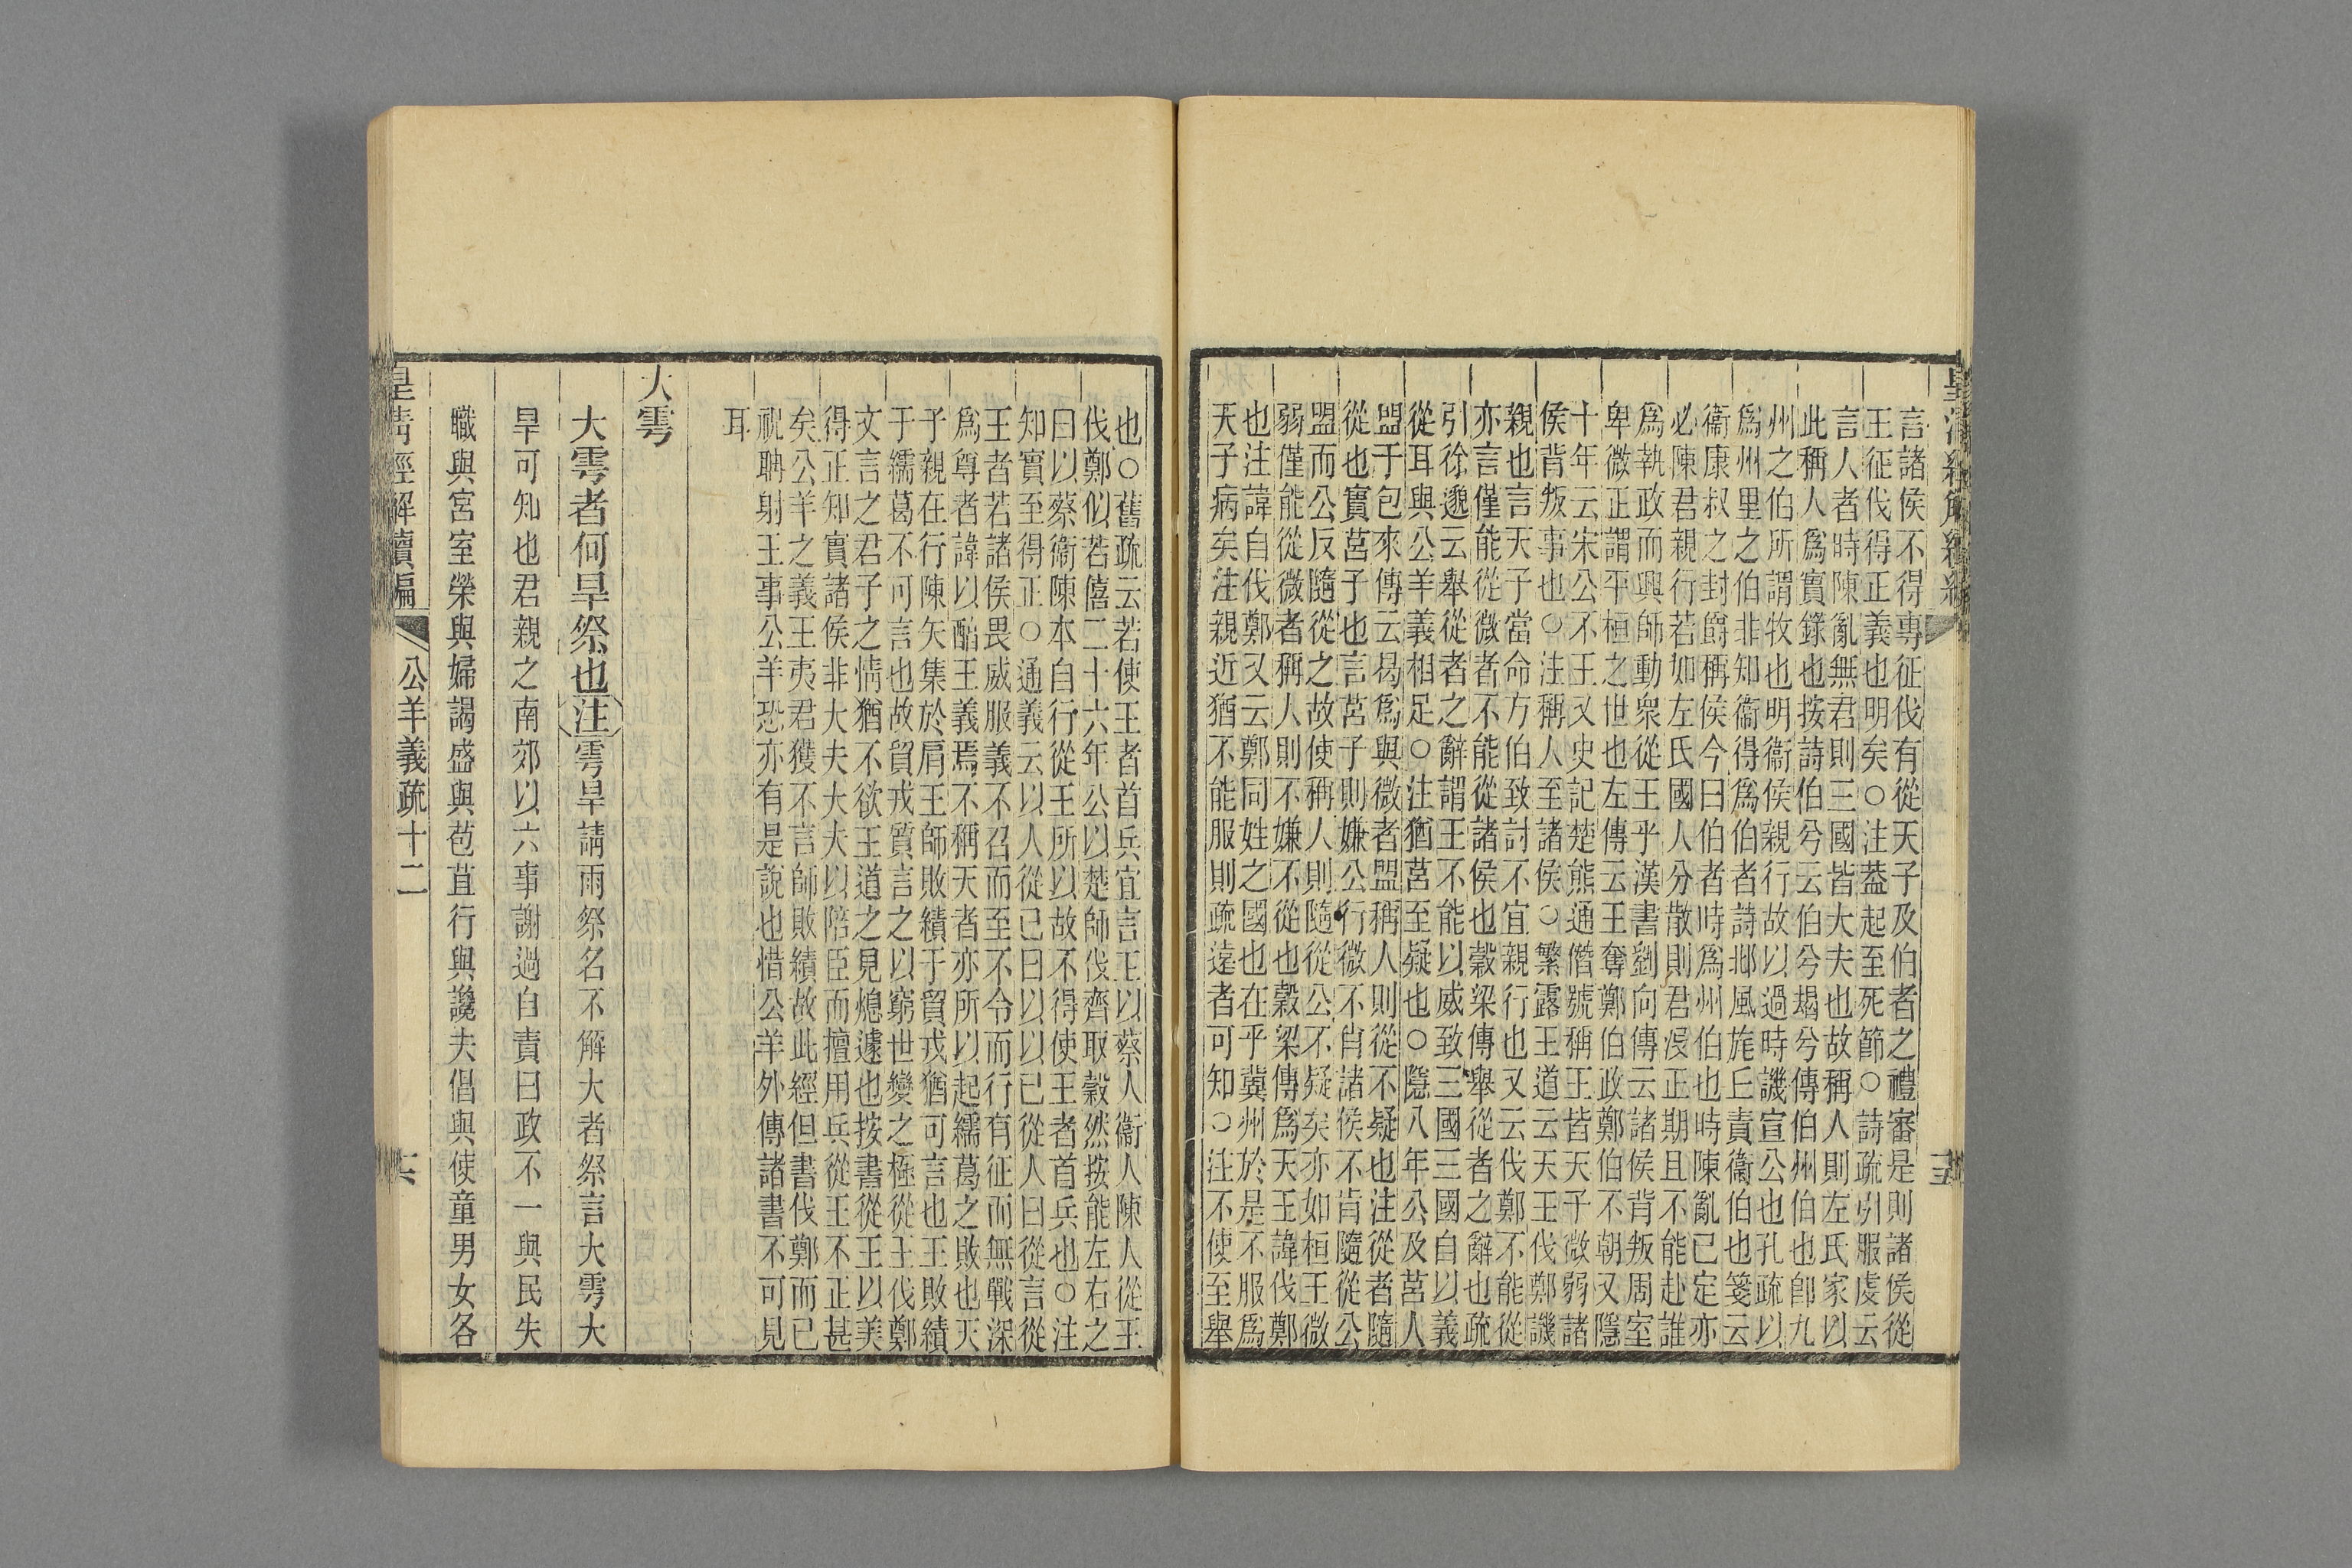 皇清經解續編
十五
言諸侯不得專征伐有從天子及伯者之禮審是則諸侯從
王征伐得正義也明矣○注葢起至死節○詩疏引服虔云
言人者時陳亂無君則三國皆大夫也故稱人則左氏家以
此稱人爲實錄也按詩伯兮云伯兮朅兮傳伯州伯也卽九
州之伯所謂牧也明衞侯親行故以過時譏宣公也孔疏以
爲州里之伯非知衞得爲伯者詩邶風旄丘責衞伯也箋云
衞康叔之封爵稱侯今曰伯者時爲州伯也時陳亂已定亦
必陳君親行若如左氏國人分散則君没正期且不能赴誰
爲執政而興師動衆從王乎漢書劉向傳云諸侯背叛周室
卑微正謂平桓之世也左傳云王奪鄭伯政鄭伯不朝又隱
十年云宋公不王又史記楚熊通僭號稱王皆天子微弱諸
侯背叛事也○注稱人至諸侯○繁露王道云天王伐鄭譏
親也言天子當命方伯致討不宜親行也又云伐鄭不能從
亦言僅能從微者不能從諸侯也穀梁傳舉從者之辭也疏
引徐邈云舉從者之辭謂王不能以威致三國三國自以義
從耳與公羊義相足○注猶莒至疑也○隱八年公及莒人
盟于包來傳云曷爲與微者盟稱人則從不疑也注從者隨
從也實莒子也言莒子則嫌公行微不肖諸侯不肯隨從公
盟而公反隨從之故使稱人則隨從公不疑矣亦如桓王微
弱僅能從微者稱人則不嫌不從也穀梁傳爲天王諱伐鄭
也注諱自伐鄭又云鄭同姓之國也在乎冀州於是不服爲
天子病矣注親近猶不能服則疏遠者可知○注不使至舉
也○舊疏云若使王者首兵宜言王以蔡人衞人陳人從王
伐鄭似若僖二十六年公以楚師伐齊取穀然按能左右之
曰以蔡衞陳本自行從王所以故不得使王者首兵也○注
知實至得正○通義云以人從已曰以以已從人曰從言從
王者若諸侯畏威服義不召而至不令而行有征而無戰深
爲尊者諱以醕王義焉不稱天者亦所以起繻葛之敗也天
子親在行陳矢集於肩王師敗績于貿戎猶可言也王敗績
于繻葛不可言也故貿戎質言之以窮世變之極從王伐鄭
文言之君子之情猶不欲王道之見熄遽也按書從王以美
得正知實諸侯非大夫大夫以陪臣而擅用兵從王不正甚
矣公羊之義王夷君獲不言師敗績故此經但書伐鄭而已
祝聃射王事公羊恐亦有是說也惜公羊外傳諸書不可見
耳
大雩
大雩者何旱祭也注雩旱請雨祭名不解大者祭言大雩大
旱可知也君親之南郊以六事謝過自責曰政不一與民失
職與宮室榮與婦謁盛與苞苴行與讒夫倡與使童男女各
皇清經解續編
公羊義疏十二
十六